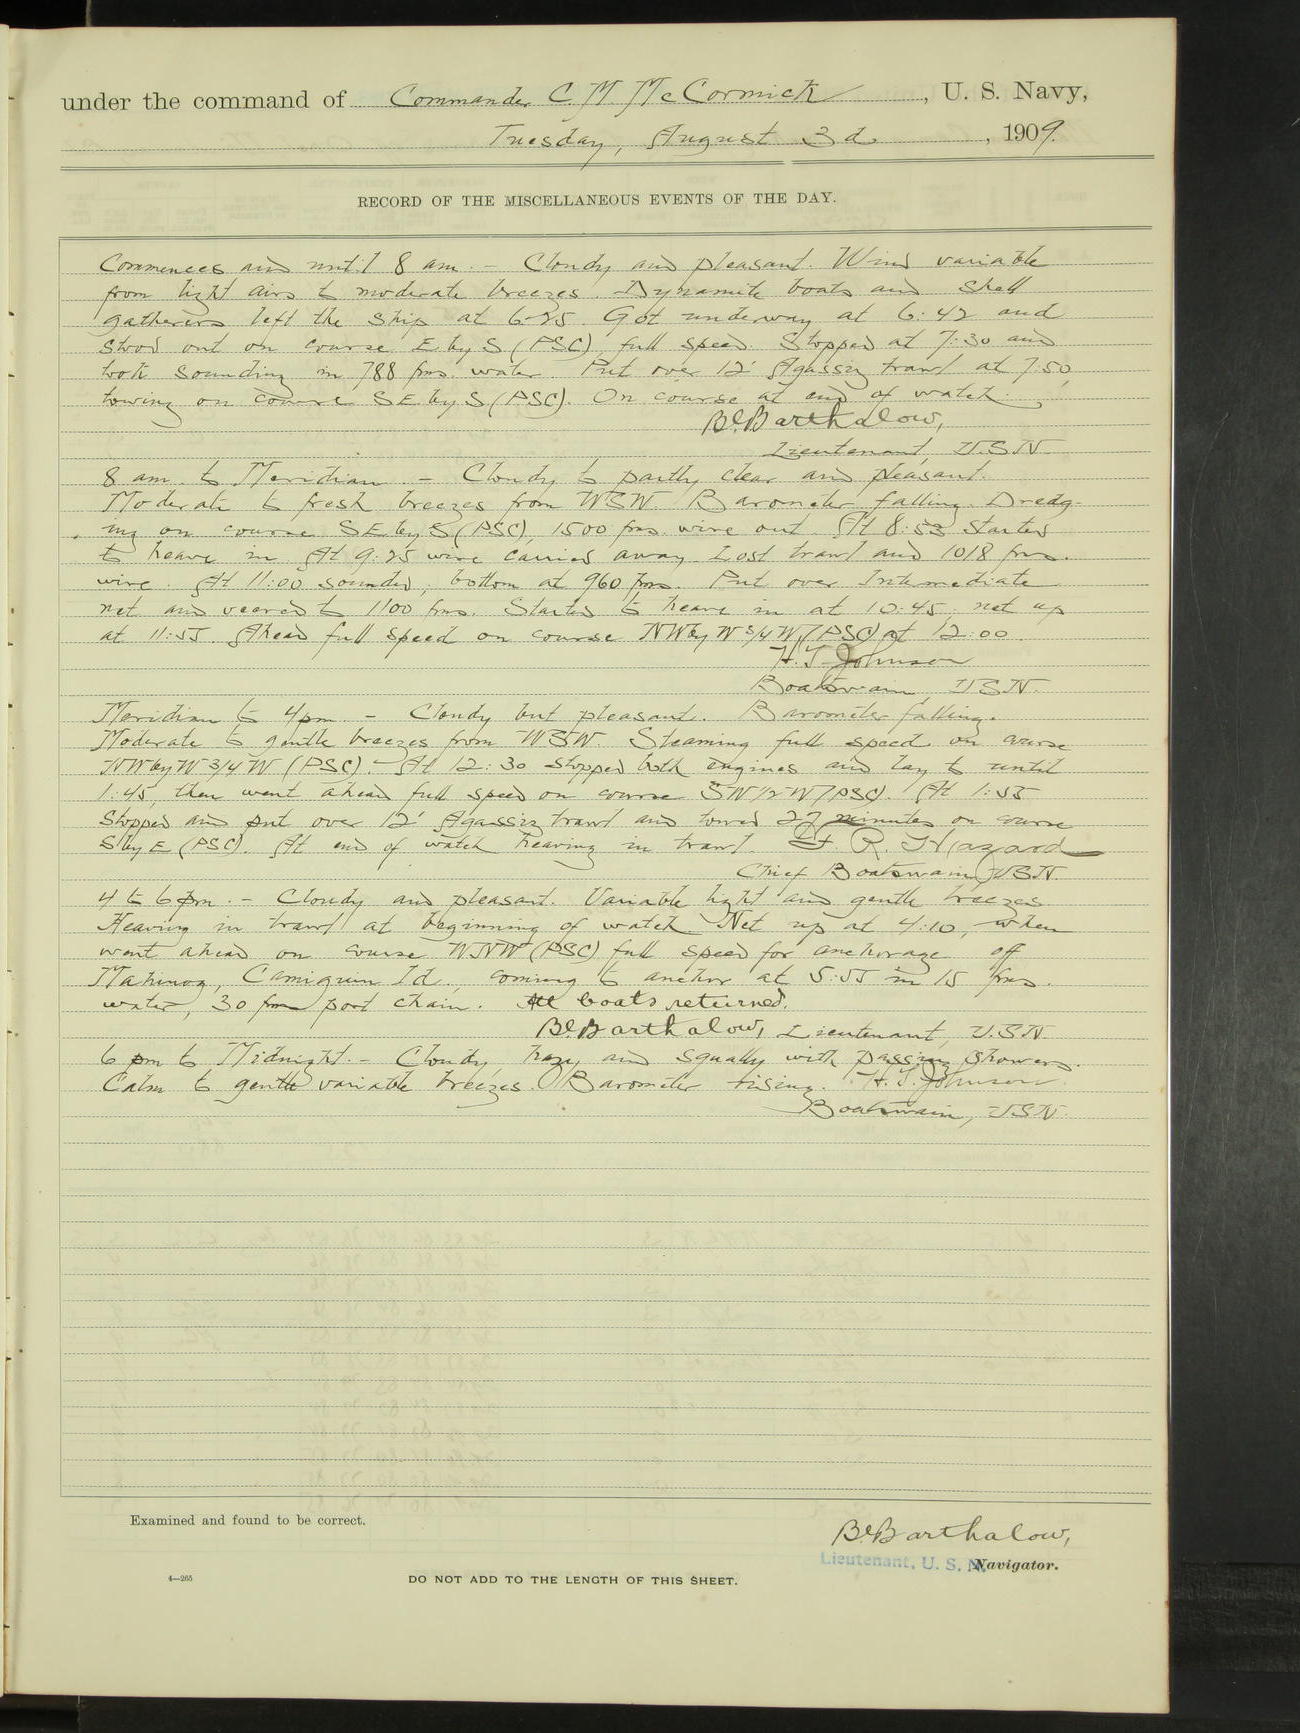 under the command of Commander C. M. McCormick, U. S. Navy,
Tuesday, August 3d, 1909.
RECORD OF THE MISCELLANEOUS EVENTS OF THE DAY.
Commences and until 8 am. – Cloudy and pleasant. Wind variable
from light airs to moderate breezes. Dynamite boats and shell
gatherers left the ship at 6:25. Got underway at 6:42 and
stood out on course E by S (PSC), full speed. Stopped at 7:30 and
took sounding in 788 fms. water. Put over 12' Agassiz trawl at 7:50,
towing on course SE by S (PSC). On course at end of watch.
B. Barthalow,
Lieutenant, U.S.N.
8 am. to Meridian. – Cloudy to partly clear and pleasant.
Moderate to fresh breezes from WSW. Barometer falling. Dredg-
ing on course SE by S (PSC), 1500 fms wire out. At 8:53 started
to heave in. At 9:25 wire carried away. Lost trawl and 1018 fms.
wire. At 11:00 sounded, bottom at 960 fms. Put over Intermediate
net and veered to 1100 fms. Started to heave in at 10:45. net up
at 11:55. Ahead full speed on course NW by W 3/4 W (PSC) at 12:00.
H. T. Johnson
Boatswain USN.
Meridian to 4 pm. – Cloudy but pleasant. Barometer falling.
Moderate to gentle breezes from WSW. Steaming full speed on course
NW by W 3/4 W (PSC). At 12:30 stopped both engines and lay to until
1:45, then went ahead full speed on course SW 1/2 W (PSC). At 1:55
stopped and put over 12' Agassiz trawl and towed 27 minutes on course
S by E (PSC). At end of watch heaving in trawl. F. R. Hazard
Chief Boatswain USN.
4 to 6 pm. – Cloudy and pleasant. Variable light and gentle breezes.
Heaving in trawl at beginning of watch. Net up at 4:10, when
went ahead on course WNW (PSC) full speed for anchorage off
Mahinog, Camiguin Id., coming to anchor at 5:55 in 15 fms.
water, 30 fms port chain. All boats returned.
B. Barthalow, Lieutenant, U.S.N.
6 pm to Midnight. – Cloudy, hazy and squally with passing showers.
Calm to gentle variable breezes. Barometer rising. H. T. Johnson
Boatswain, USN.
Examined and found to be correct.
B. Barthalow,
Lieutenant, U. S. N. Navigator.
4—265
DO NOT ADD TO THE LENGTH OF THIS SHEET.